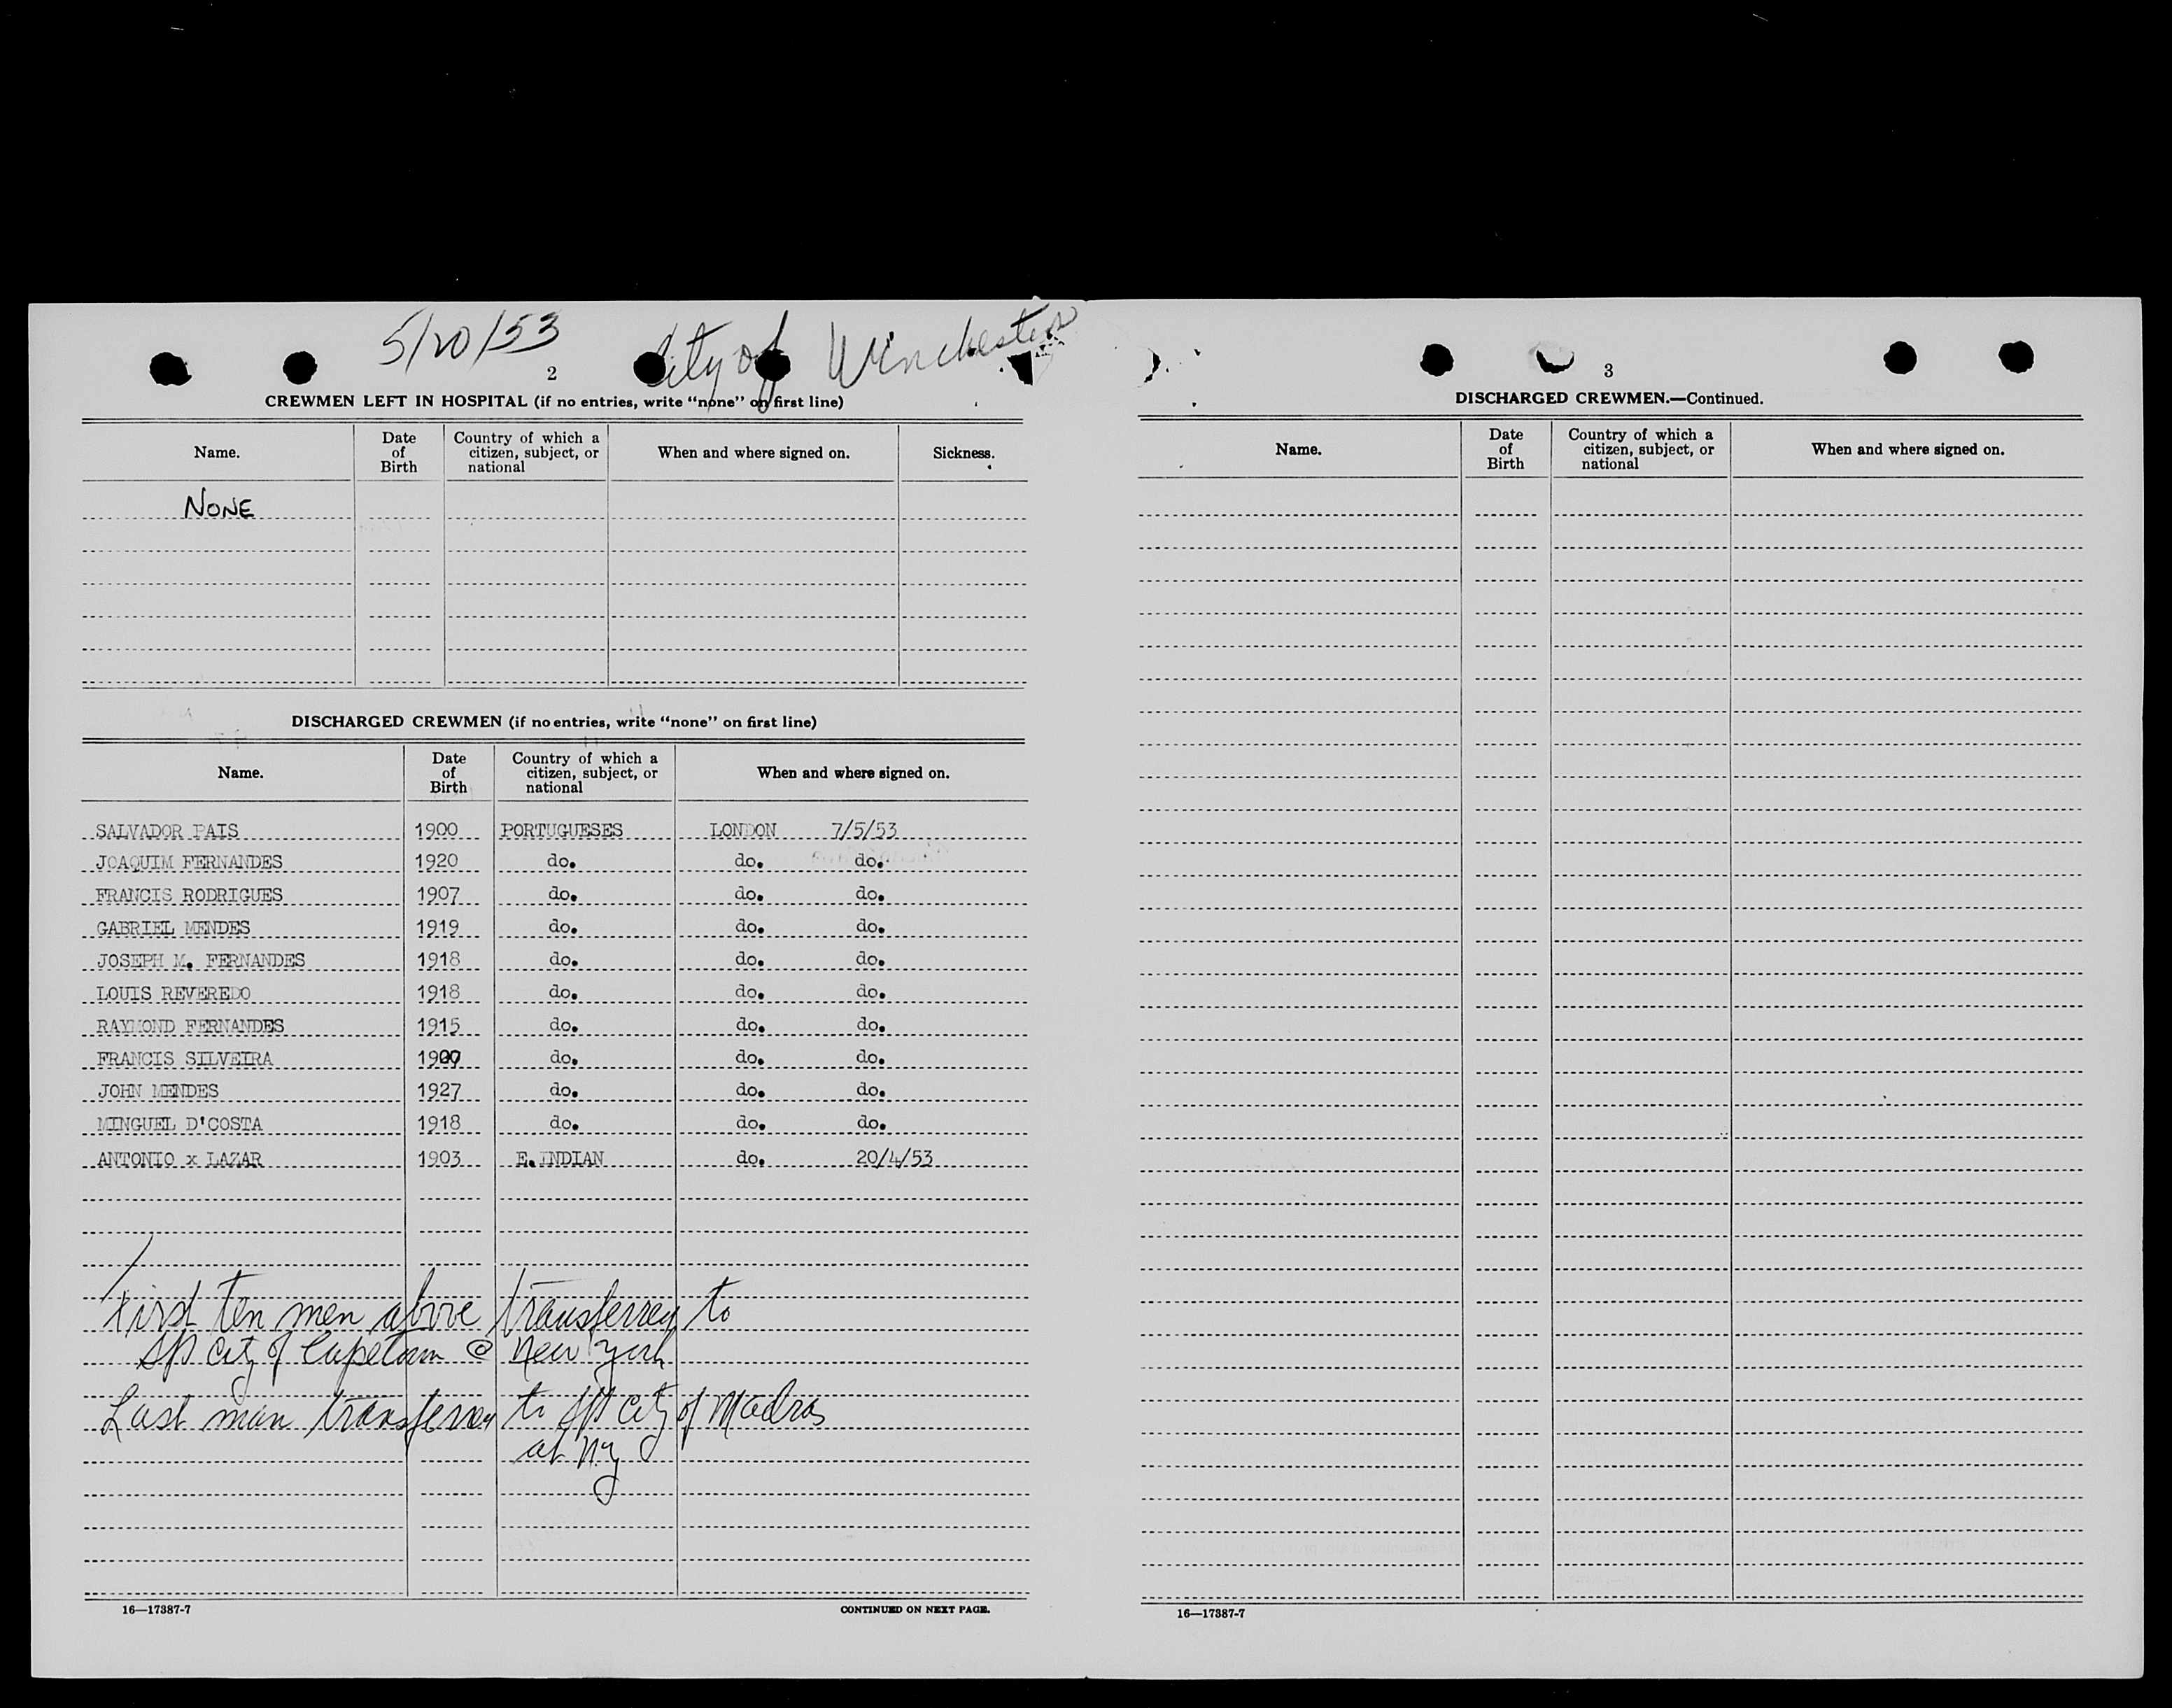 5/20/53 City of Winchester
2
CREWMEN LEFT IN HOSPITAL (if no entries, write “none” on first line)
Name. Date of Birth Country of which a citizen, subject, or national When and where signed on. Sickness.
NONE
DISCHARGED CREWMEN (if no entries, write “none” on first line)
Name. Date of Birth Country of which a citizen, subject, or national When and where signed on.
SALVADOR PAIS 1900 PORTUGUESES LONDON 7/5/53
JOAQUIM FERNANDES 1920 do. do. do.
FRANCIS RODRIGUES 1907 do. do. do.
GABRIEL MENDES 1919 do. do. do.
JOSEPH M. FERNANDES 1918 do. do. do.
LOUIS REVEREDO 1918 do. do. do.
RAYMOND FERNANDES 1915 do. do. do.
FRANCIS SILVEIRA do. do. do.
JOHN MENDES 1927 do. do. do.
MINGUEL D'COSTA 1918 do. do. do.
ANTONIO x LAZAR 1903 E. INDIAN do. 20/4/53
First ten men above transferred to
City of Capetown @ New York
Last man transferred to City of Madras
at NY
16—17387-7 CONTINUED ON NEXT PAGE.
3
DISCHARGED CREWMEN.—Continued.
Name. Date of Birth Country of which a citizen, subject, or national When and where signed on.
16—17387-7